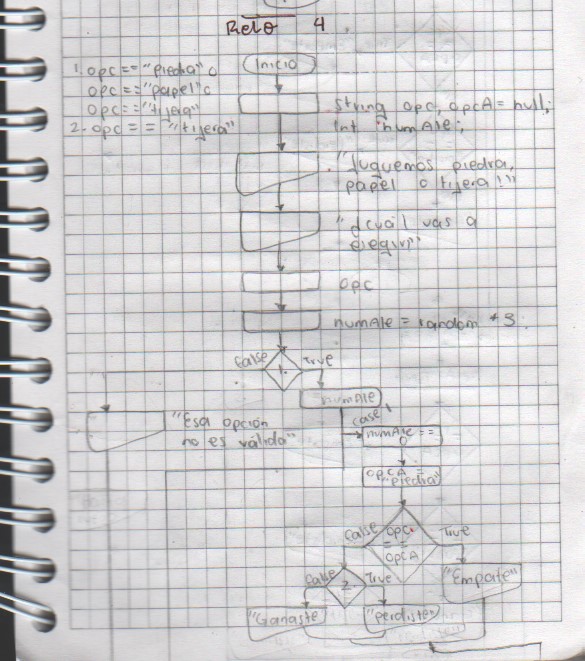 Reto 4
1. opc == "piedra" o
opc == "papel" o
opc == "tijera"
2. opc == "tijera"
Inicio
string opc, opcA = null;
int numAle;
"Juguemos piedra,
papel o tijera!!"
"¿cuál vas a
elegir?"
opc
numAle = random * 3
false
True
1.
numAle
"Esa opción
no es válida"
case 1
numAle ==
0
opcA =
"piedra"
false
opc
==
opcA
True
"Empate"
false
2
True
"Ganaste"
"perdiste"